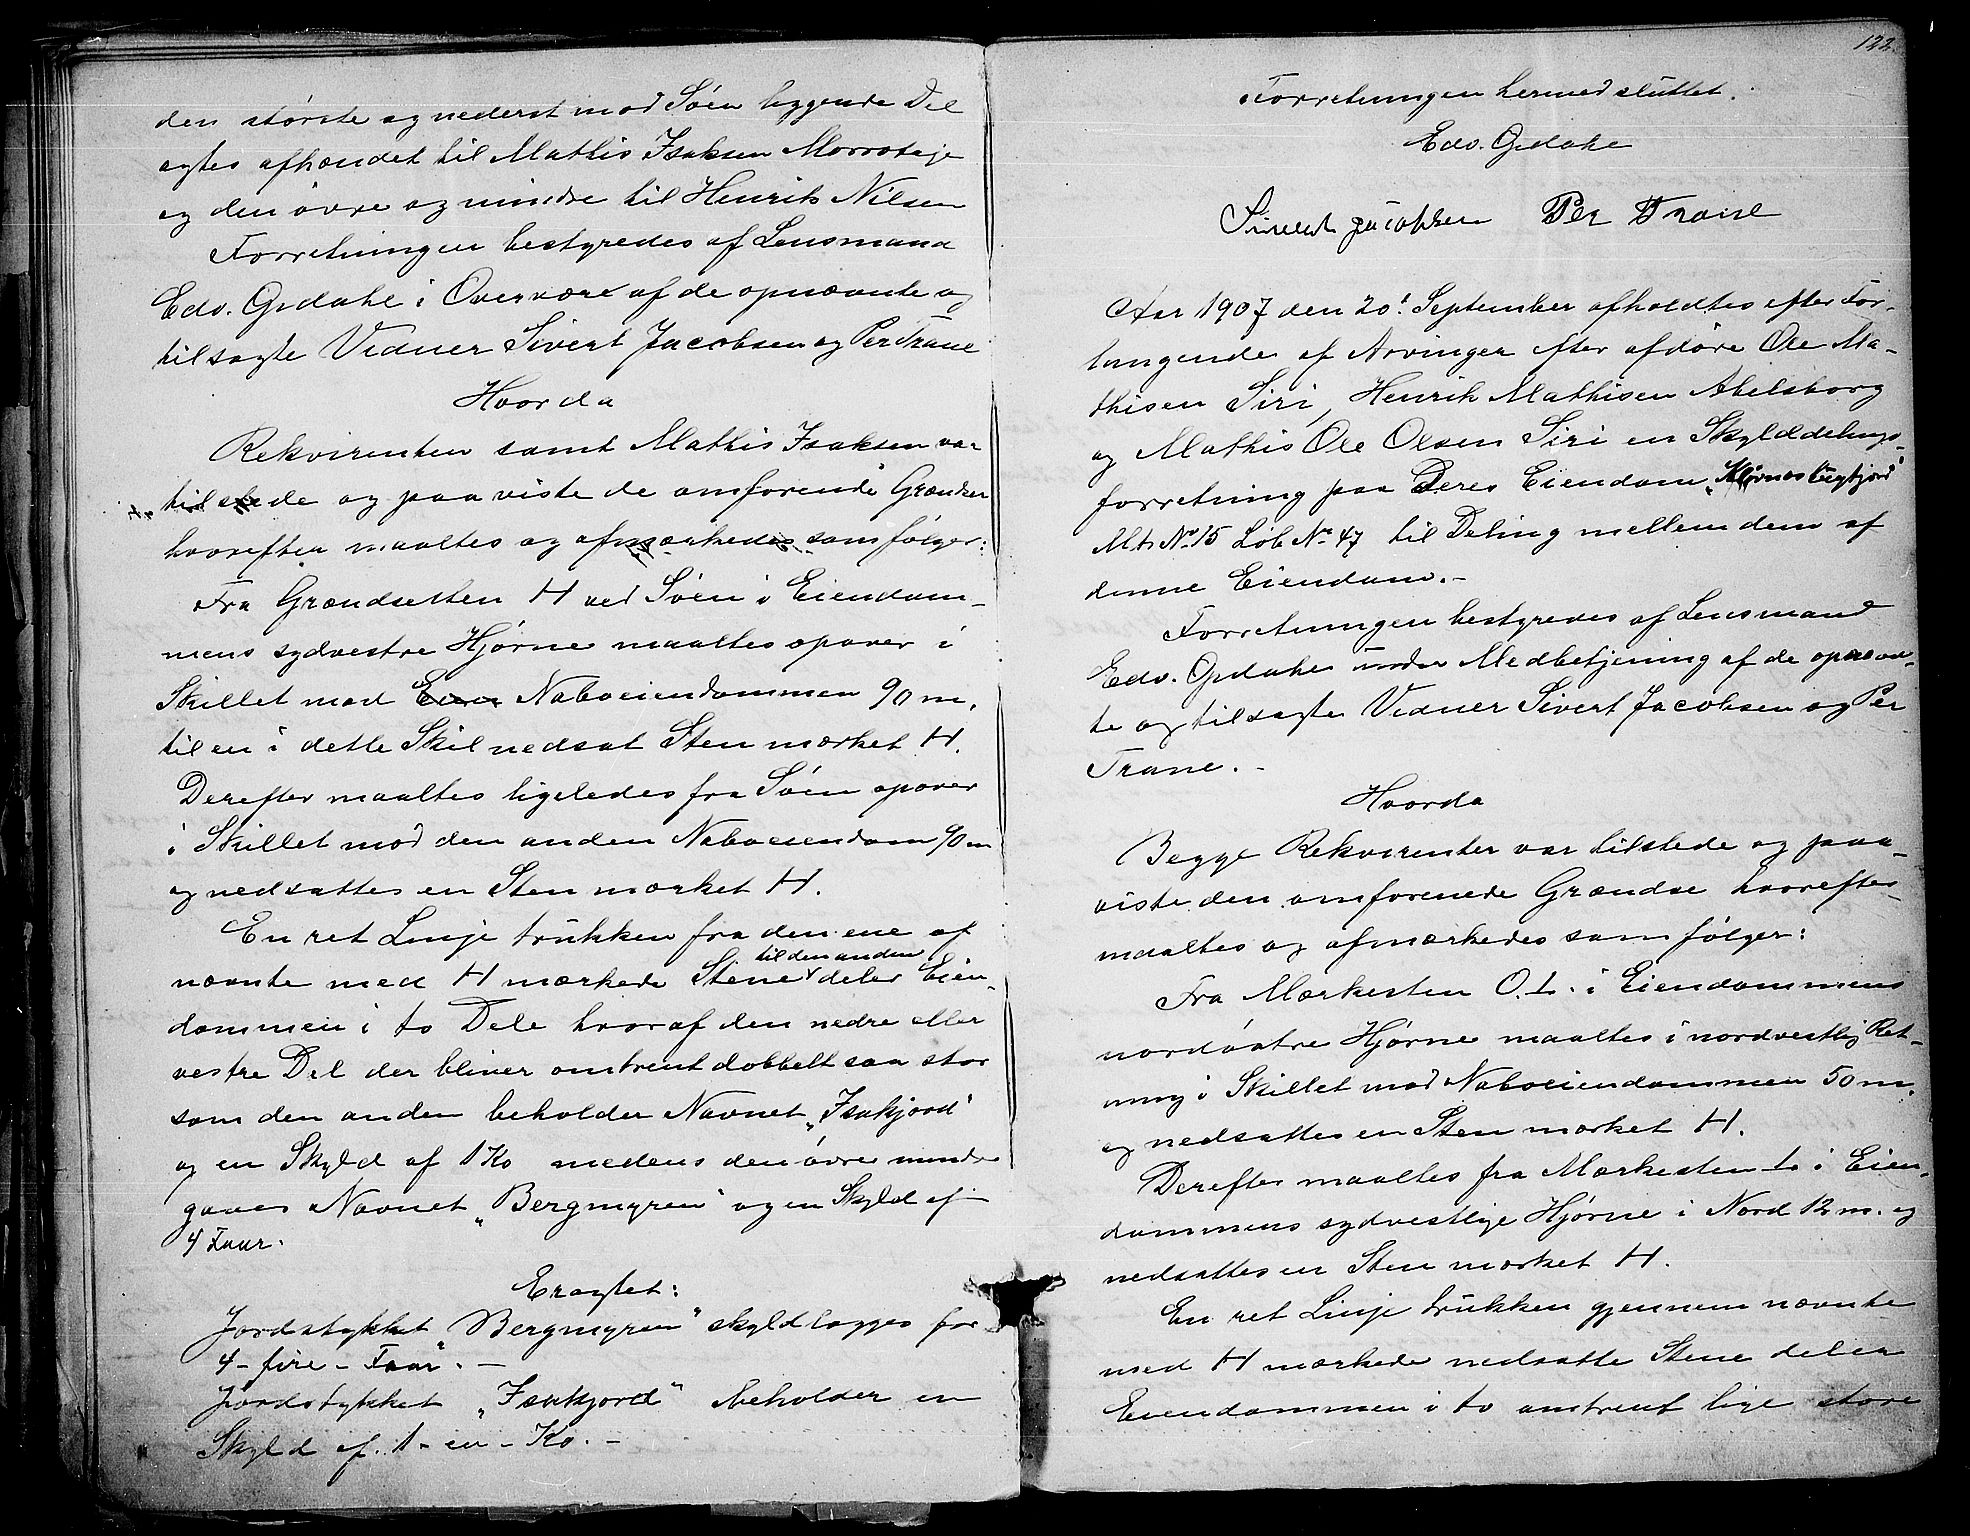 den største og nederst mod Søen liggende Del
agtes afhændet til Mathis Isaksen
og den övre og mindre til Henrik Nilsen
Forretningen bestyredes af Lensmand
Edv. Opdahl i Overvære af de opnævnte og
tilsagte Vidner Sivert Jacobsen og Per Trane
Hvorda
Rekvirenten samt Mathis Isaksen var
tilstede og paaviste de omforende Grændser
hvorefter maaltes og afmærkedes som følger:
Fra Grændsesten H ved Söen i Eiendom-
mens sydvestre Hjørne maaltes opover i
Skillet mod Naboeiendommen 90 m.
til en i dette Skil nedsat Sten mærket H.
Derefter maaltes ligeledes fra Søen opover
i Skillet mod den anden Naboeiendom 90 m
og nedsattes en Sten mærket H.
En ret Linje trukken fra den ene af
til den anden
nævnte med H mærkede Stene deler Eien-
dommen i to Dele hvoraf den nedre eller
vestre Del der bliver omtrent dobbelt saa stor
som den anden beholder Navnet „Isakjord"
og en Skyld af 1 Ko medens den øvre mindre
gaves Navnet „Bergmyren" og en Skyld af
4 Faar.
Eragtet:
Jordstykket „Bergmyren" skyldlægges for
4 - fire - Faar. -
Jordstykket „Isakjord" beholder en
Skyld af 1 - en - Ko. -
122.
Forretningen hermed sluttet.
Edv. Opdahl
Sivert Jacobsen Per Trane
Aar 1907 den 20de September afholdtes efter For-
langende af Arvinger efter afdøde Ole Ma-
thisen Siri, Henrik Mathisen Abelsborg
og Mathis Ole Olsen Siri en Skylddelings-
forretning paa Deres Eiendom
Mt. No. 15 Löb No. 47 til Deling mellem dem af
denne Eiendom. -
Forretningen bestyredes af Lensmand
Edv. Opdahl under Medbetjening af de opnævn-
te og tilsagte Vidner Sivert Jacobsen og Per
Trane. -
Hvorda
Begge Rekvirenter var tilstede og paa-
viste den omforenede Grændse hvorefter
maaltes og afmærkedes som følger:
Fra Mærkesten O. L. i Eiendommens
nordöstre Hjørne maaltes i nordvestlig Ret-
ning i Skillet mod Naboeiendommen 50 m.
og nedsattes en Sten mærket H.
Derefter maaltes fra Mærkesten L. i Eien-
dommens sydvestlige Hjørne i Nord 12 m. og
nedsattes en Sten mærket H.
En ret Linje trukken gjennem nævnte
med H mærkede nedsatte Stene deler
Eiendommen i to omtrent lige store